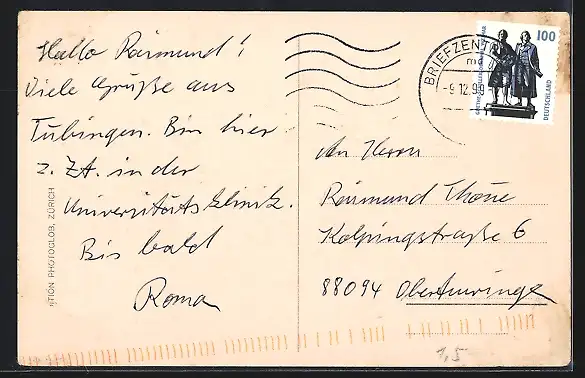 Hallo Raimund!
Viele Grüße aus
Tübingen. Bin hier
z. Zt. in der
Universitätsklinik.
Bis bald
Roma
EDITION PHOTOGLOB, ZÜRICH
BRIEFZENTRUM
md
-9.12.99
100
DEUTSCHLAND
An Herrn
Raimund Thöne
Kolpingstraße 6
88094 Oberteuringen
1,5